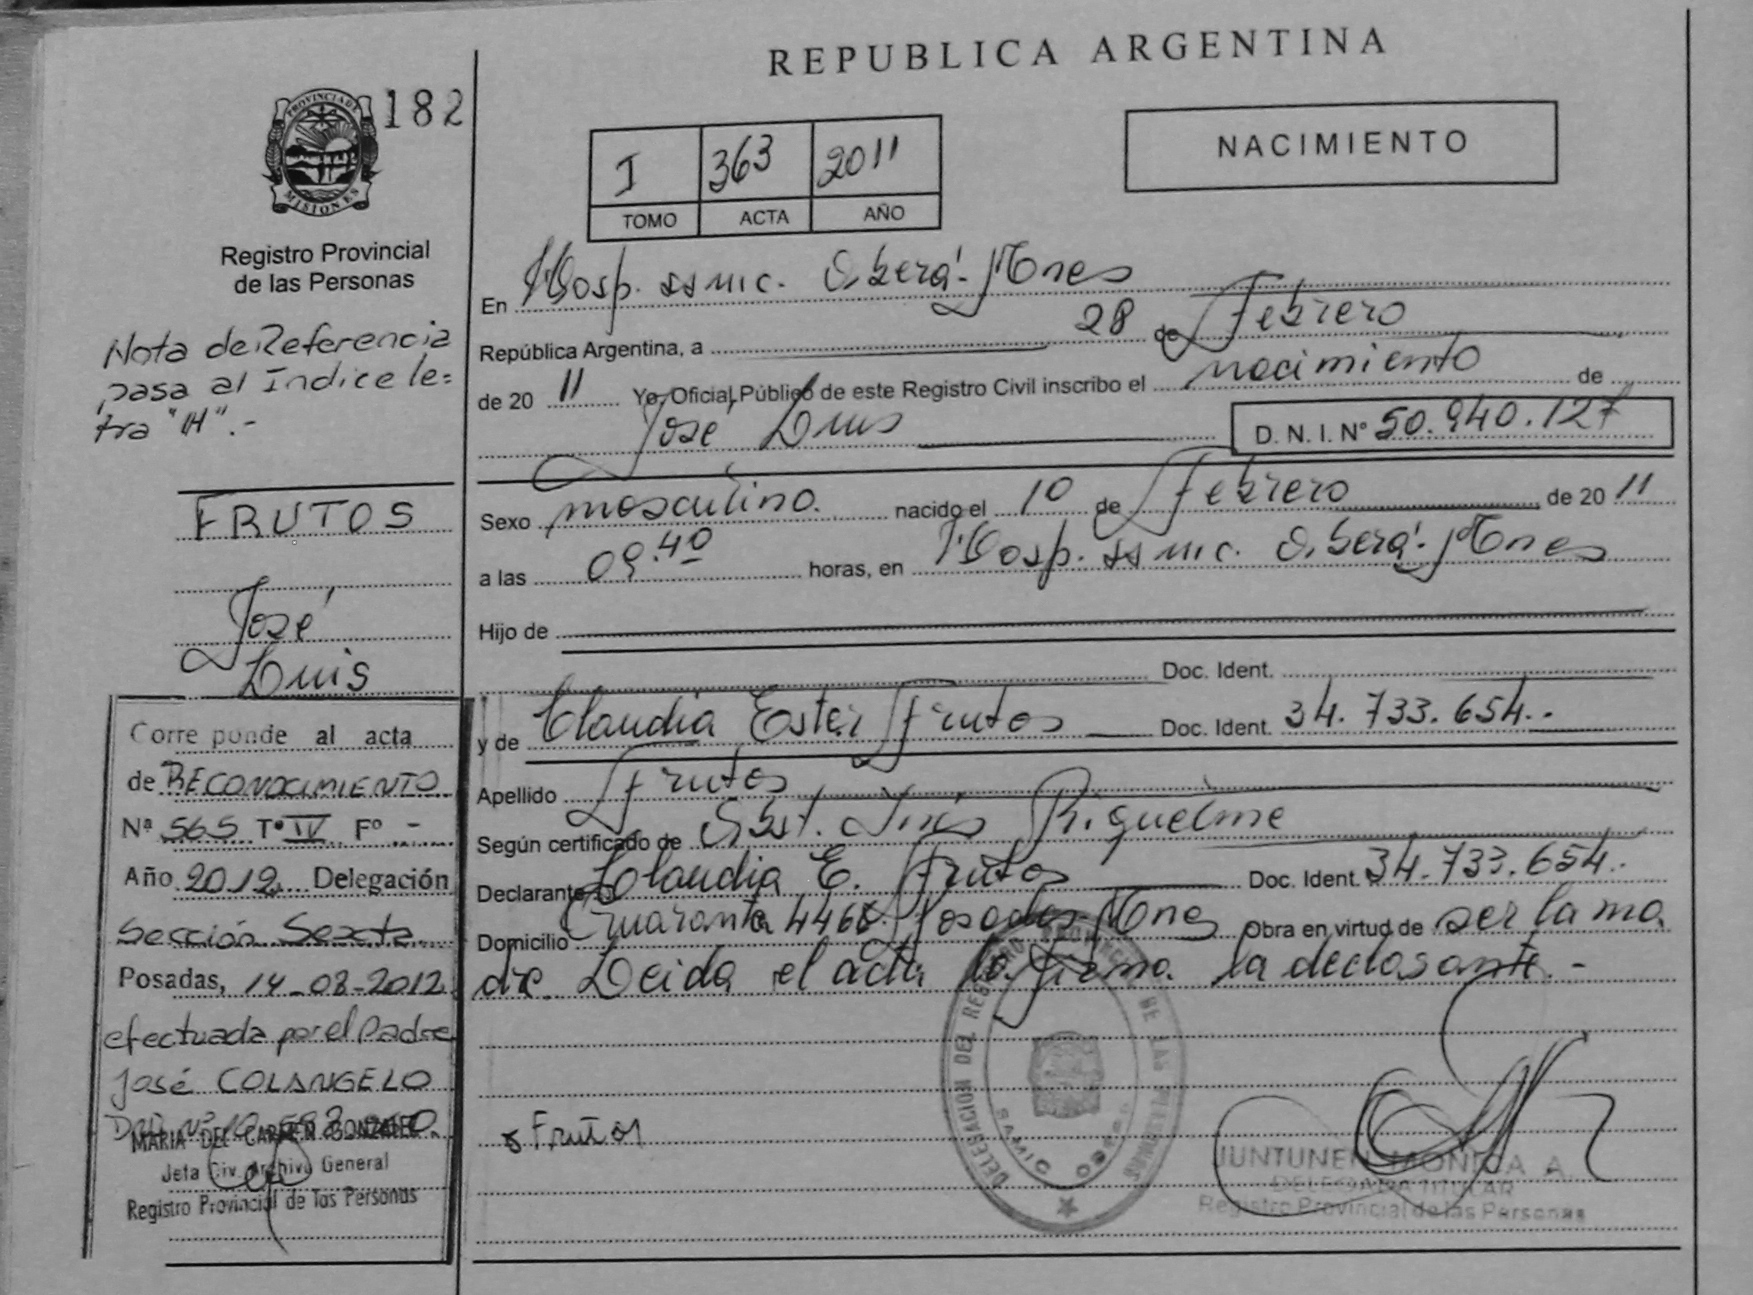 REPUBLICA ARGENTINA
PROVINCIA DE
MISIONES
182
I 363 2011
TOMO ACTA AÑO
NACIMIENTO
Registro Provincial
de las Personas
Nota de Referencia
pasa al Indice le=
tra "H".-
FRUTOS
José
Luis
Corre ponde al acta
de RECONOCIMIENTO
Nª 565 Tº IV Fº -
Año 2012 Delegación
Sección Sexta
Posadas, 14-08-2012
efectuada por el Padre
José COLANGELO
MARIA DEL CARMEN GONZALEZ
Jefa Civ. Archivo General
Registro Provincial de las Personas
En Hosp. ss mic. Oberá- Mnes
República Argentina, a 28 de Febrero
de 20 11 Yo, Oficial Público de este Registro Civil inscribo el nacimiento de
José Luis D. N. I. Nº 50.940.127
Sexo masculino. nacido el 10 de Febrero de 20 11
a las 09.40 horas, en Hosp. ss mic. Oberá- Mnes
Hijo de
Doc. Ident.
y de Claudia Ester Frutos Doc. Ident. 34.733.654.-
Apellido Frutos
Según certificado de Obst. Inés Riquelme
Declarante Claudia E. Frutos Doc. Ident. 34.733.654.
Domicilio Cuaranta 4466 Posadas Mnes Obra en virtud de ser la ma
dre. Leida el acta la firma la declarante.-
Frutos
DELEGACION DEL REGISTRO PROVINCIAL DE LAS PERSONAS
JUNTUNEN MONICA A.
DELEGADA TITULAR
Registro Provincial de las Personas